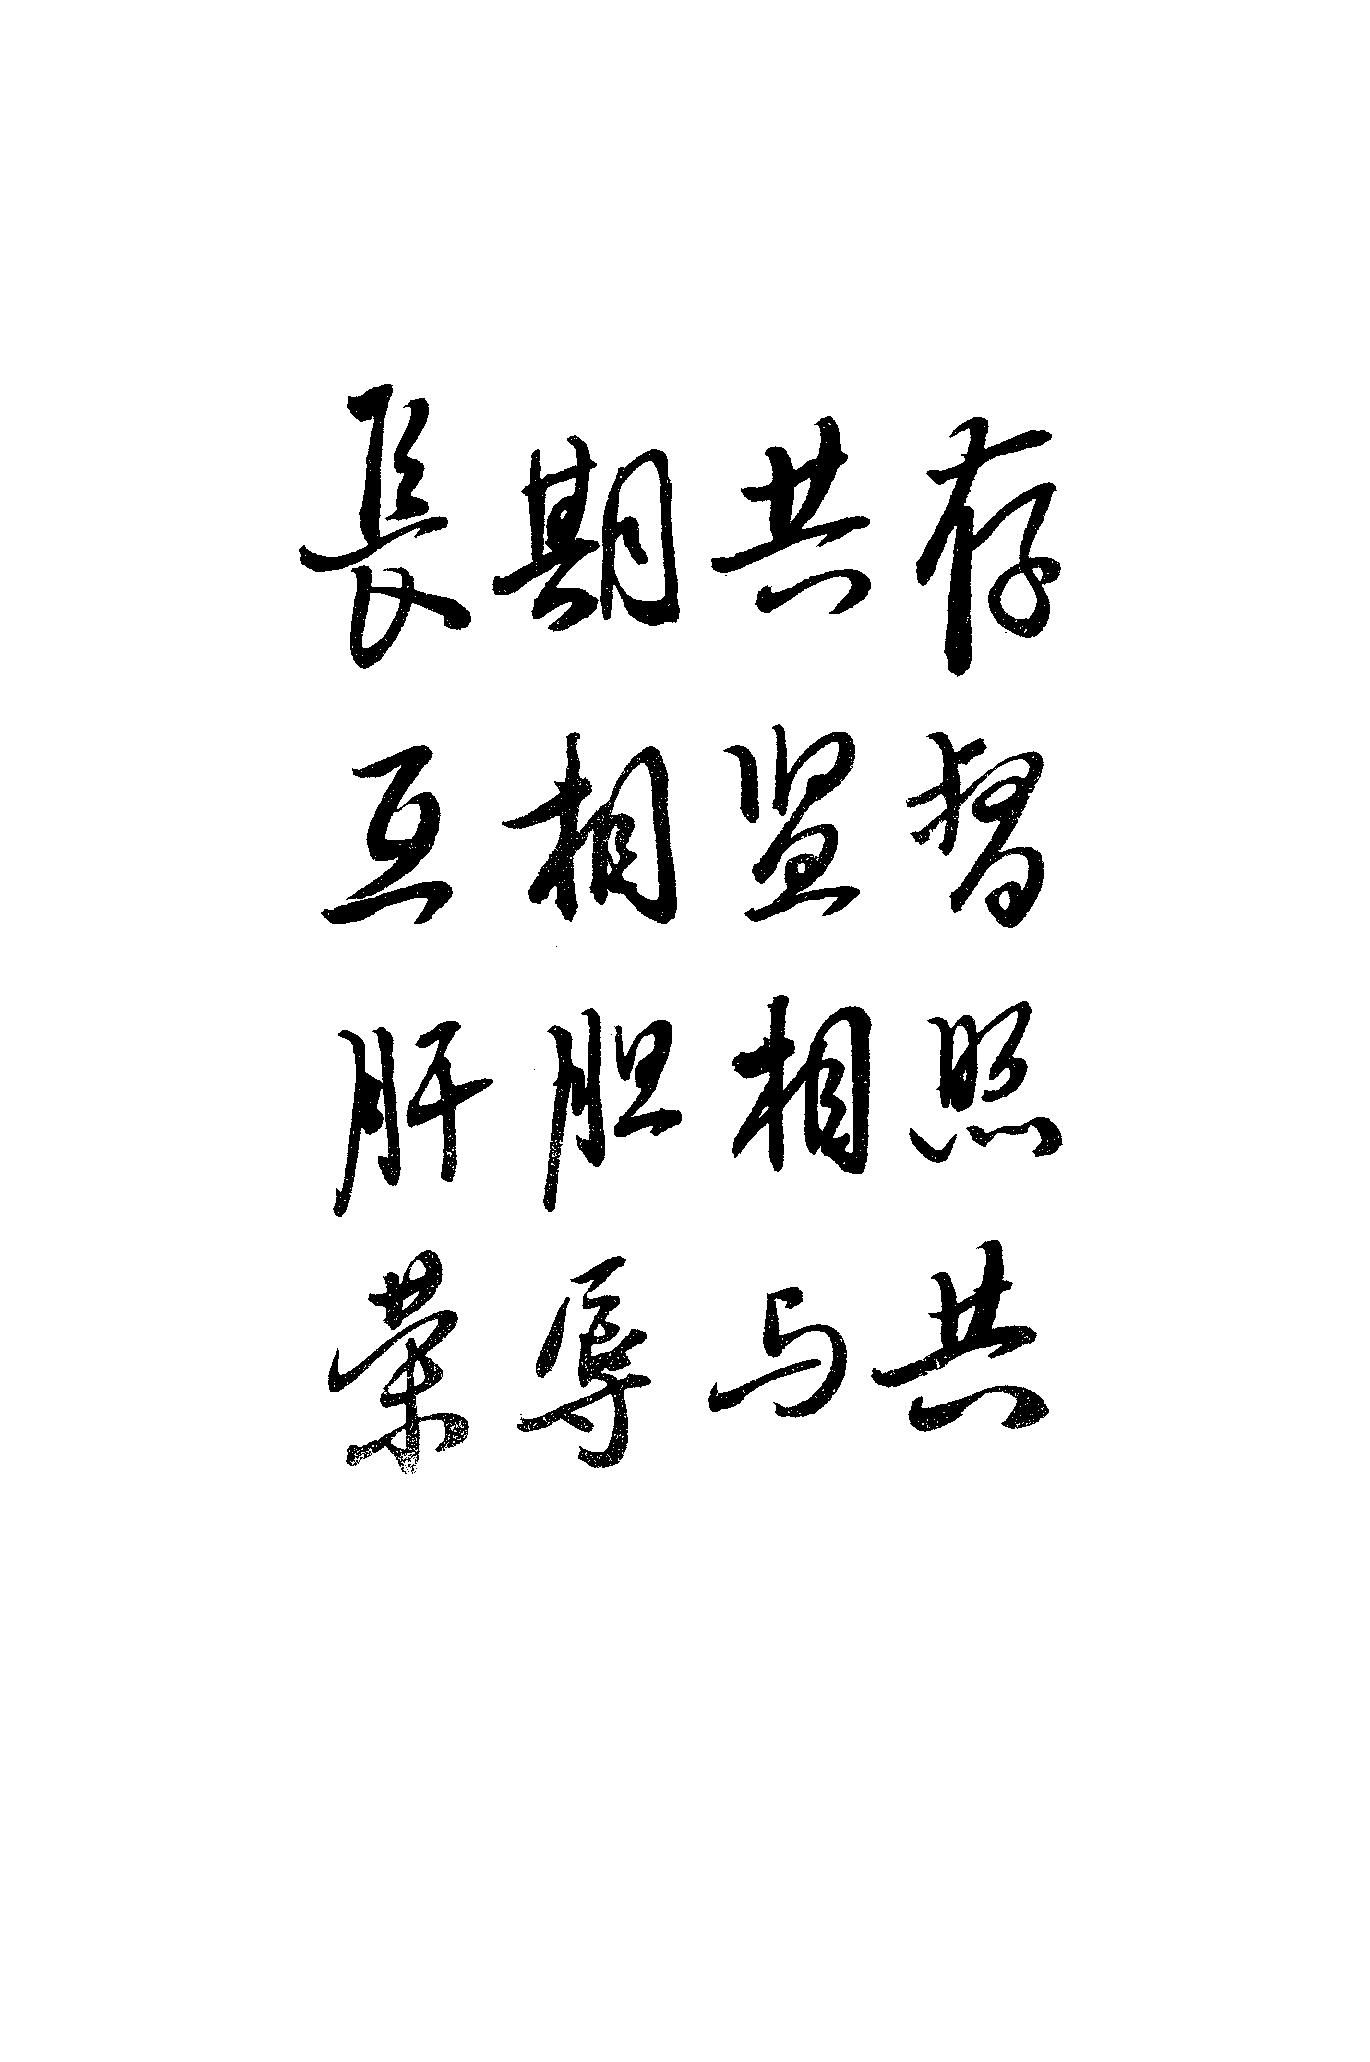 長期共存
互相监督
肝胆相照
荣辱与共